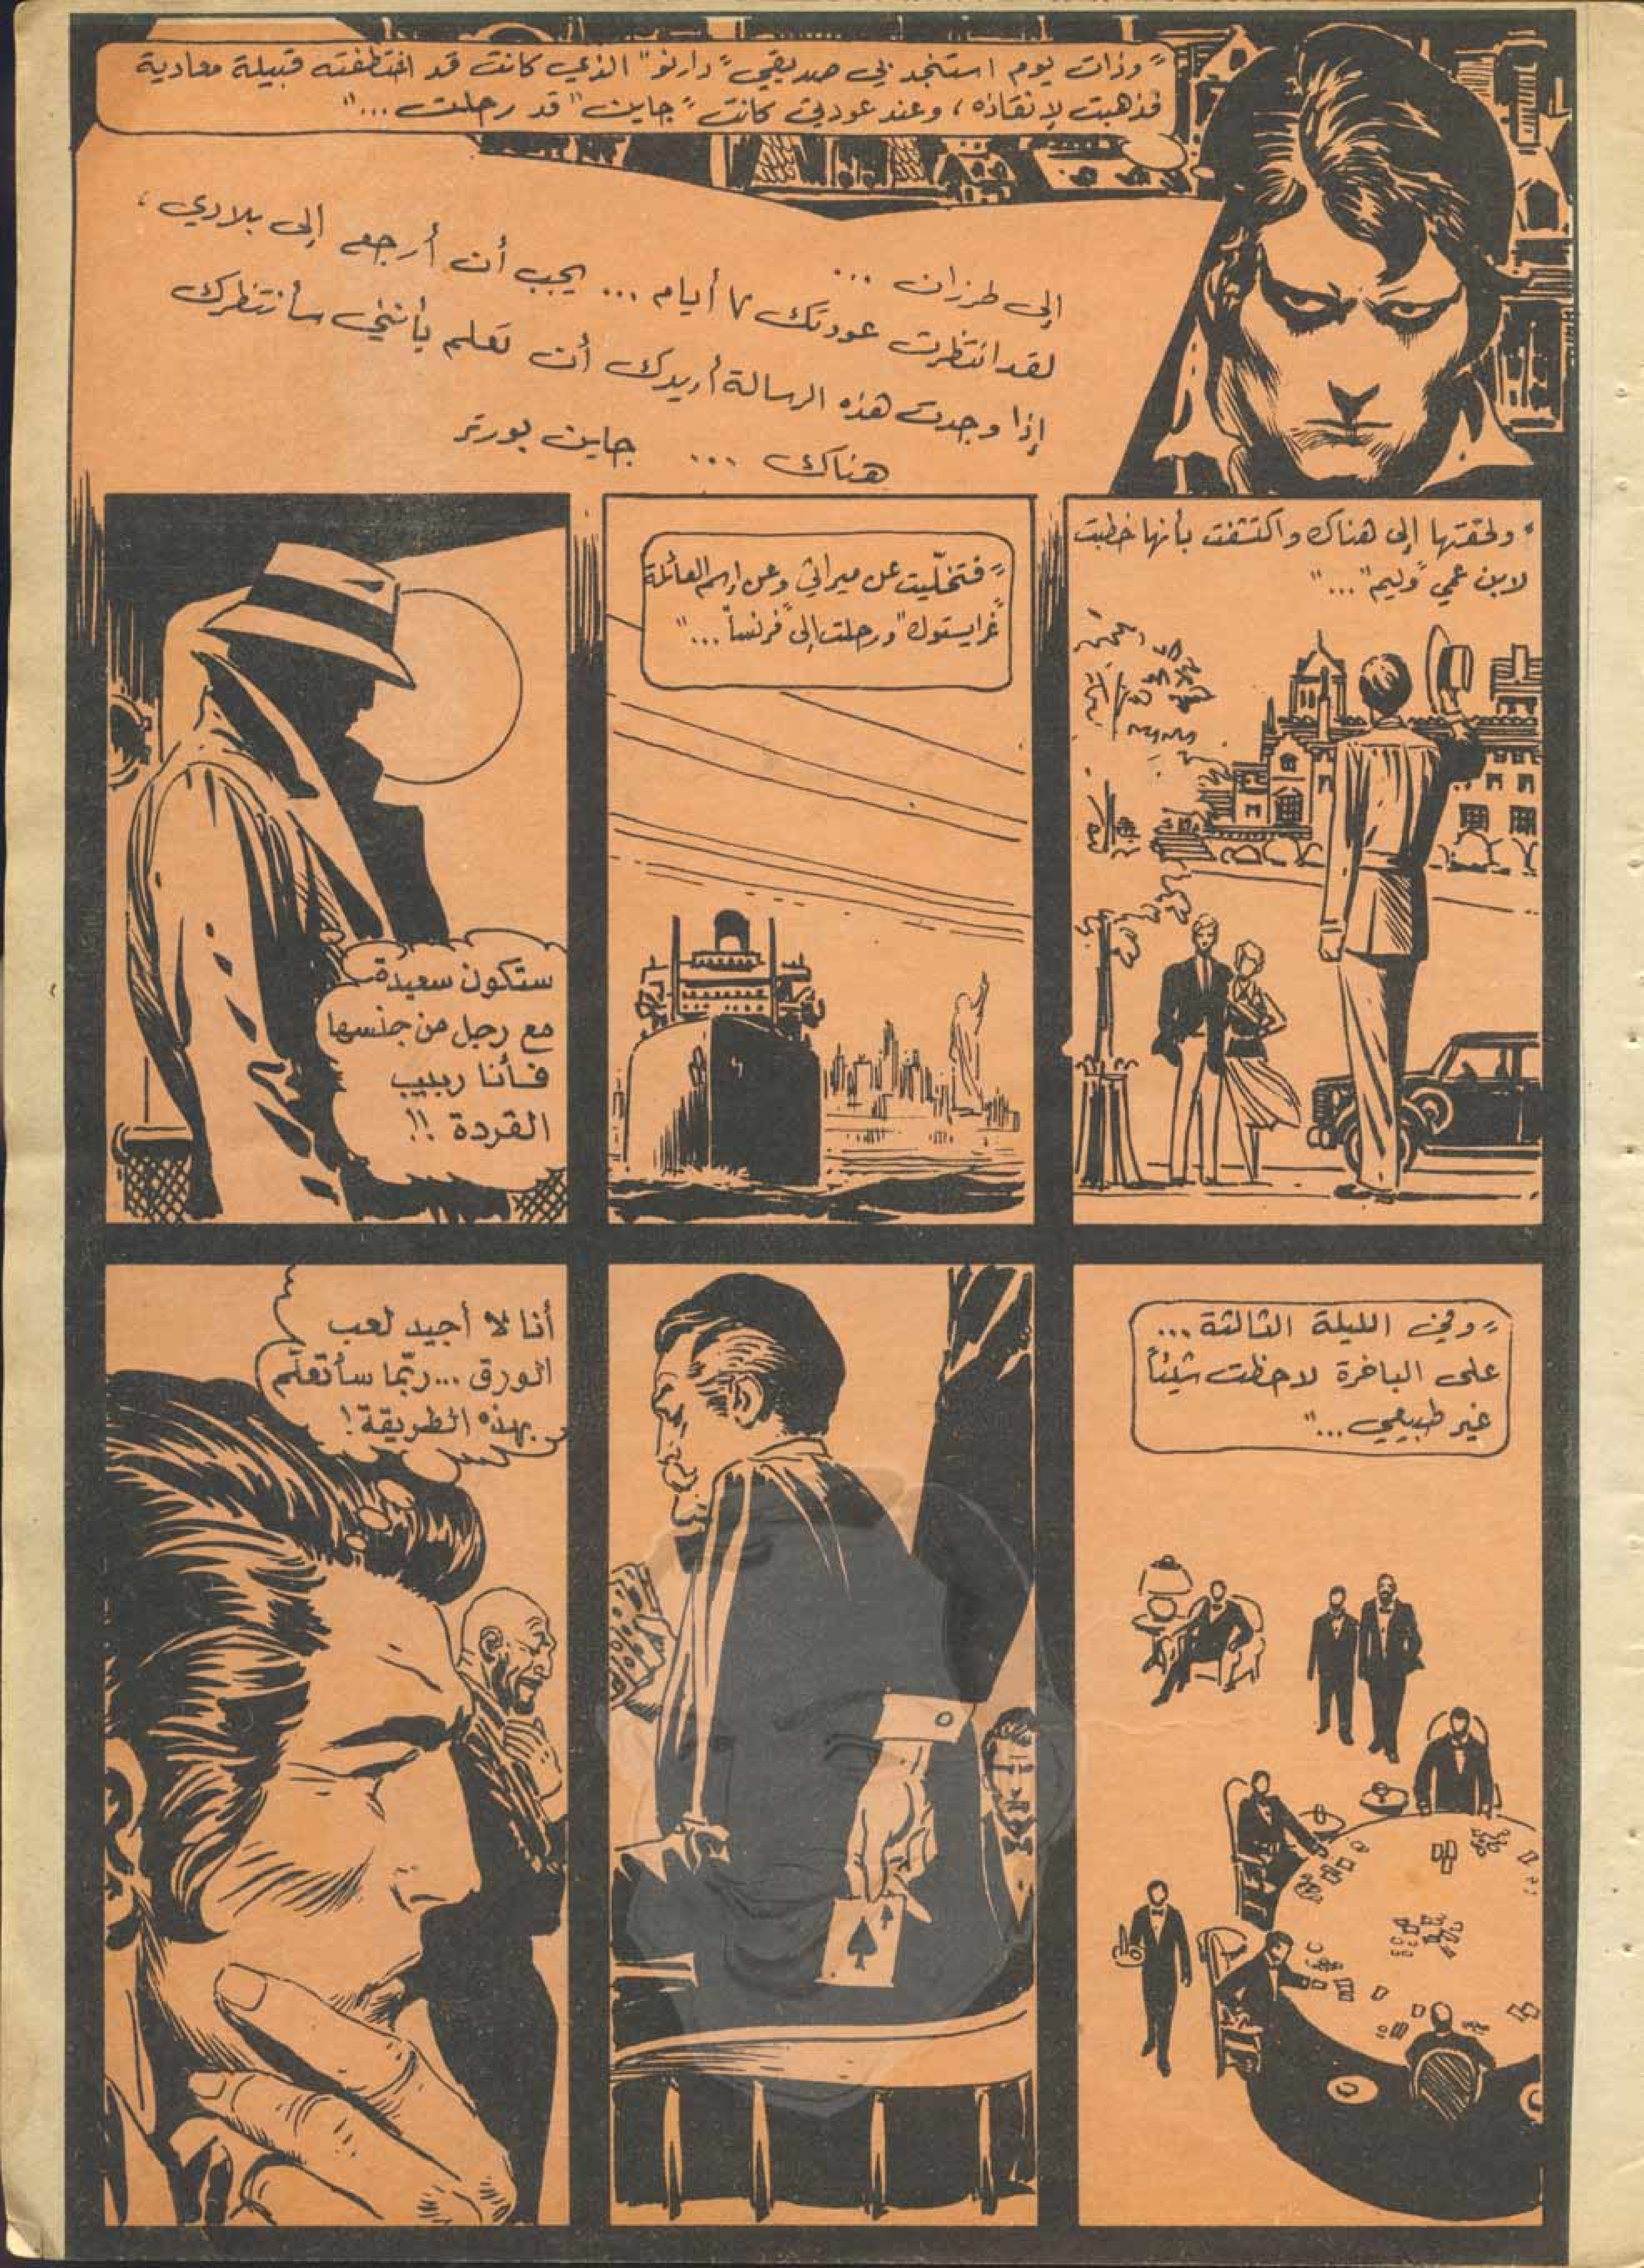 "وذات يوم استنجد بي صديقي "دارنو" الذي كانت قد اختطفته قبيلة معادية
فذهبت لإنقاذه، وعند عودتي كانت "جاين" قد رحلت..."
إلى طرزان ...
لقد انتظرت عودتك ٧ أيام ... يجب أن أرجع إلى بلادي،
إذا وجدت هذه الرسالة أريدك أن تعلم بأنني سأنتظرك
هناك ... جاين بورتر
"ولحقتها إلى هناك واكتشفت بأنها خطبت
لابن عمي "وليم"..."
"فتخلّيت عن ميراثي وعن إسم العائلة
"غرايستوك" ورحلت إلى "فرنسا"..."
ستكون سعيدة
مع رجل من جنسها
فأنا ربيب
القردة !!
"وفي الليلة الثالثة...
على الباخرة لاحظت شيئاً
غير طبيعي..."
أنا لا أجيد لعب
الورق ...ربّما سأتعلّم
بهذه الطريقة!